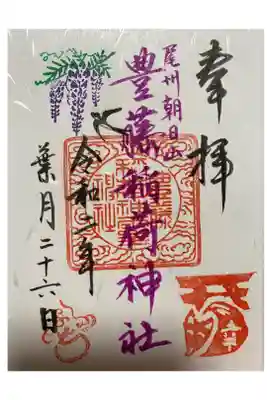 奉拝
尾州朝日出
豊藤稲荷神社
令和二年
葉月二十六日